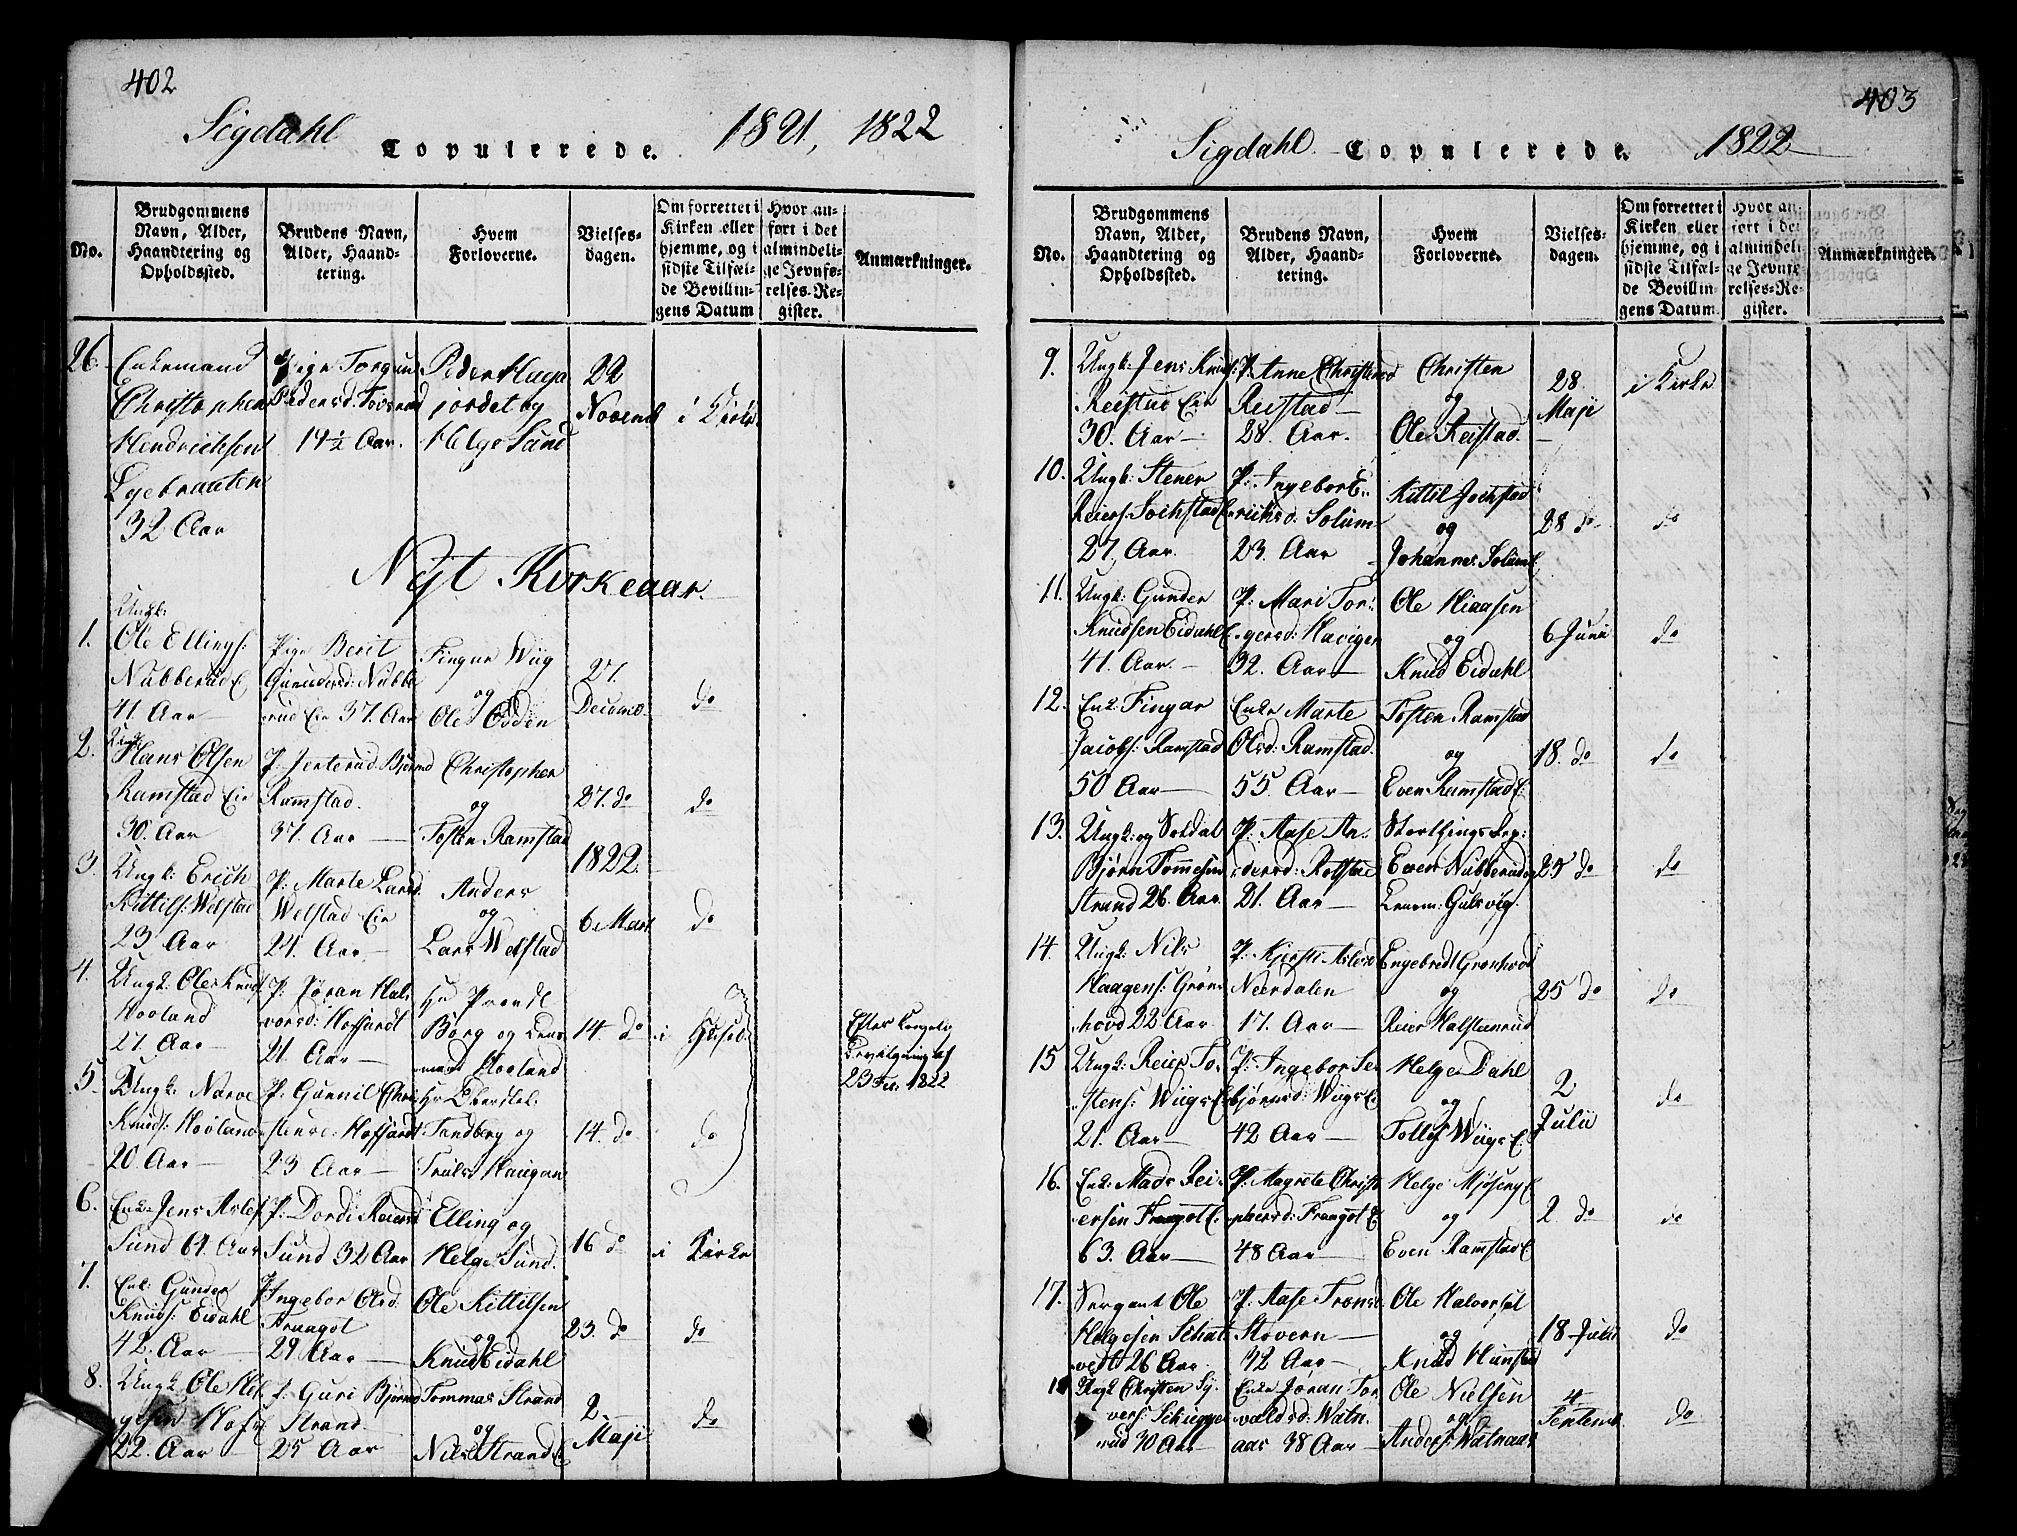 402
Sigdahl Copulerede. 1821, 1822
No.
Brudgommens
Navn, Alder,
Haandtering og
Opholdssted.
Brudens Navn,
Alder, Haand-
tering.
Hvem
Forloverne.
Vielses-
dagen.
Om forrettet i
Kirken eller
hjemme, og i
sidste Tilfæl-
de Bevillin-
gens Datum
Hvor an-
ført i det
almindeli-
ge Jevnfø-
relses-Re-
gister.
Anmærkninger.
26.
Enkemand
Christopher
Hendrichsen
32 Aar
Pige Torgun
Pedersd:
19½ Aar.
Peder Haga
jordet og
Helge Sund
22
Novemb
i Kirke
Nyt Kirkeaar.
1.
Ungk:
Ole Ellings:
Nubberud E
41 Aar
Pige Berit
Gunnersd: Nubbe
rud Eie 37. Aar
Fingar Wiig
og
Ole Osden
27.
Decemb.
do
2.
Ungk
Hans Olsen
Ramstad Eie
30. Aar
P. Jertrud Biørnsd
Ramstad.
37. Aar
Christopher
og
Tosten Ramstad
27. do
do
3.
Ungk: Erich
Kittils: Welstad
23 Aar
P: Marte Larsd.
Welstad Eie
24. Aar
Anders
og
Lars Welstad
1822.
6. Mart
do
4.
Ungk. Ole Knuds
Hovland
27 Aar
P: Jøran Hal-
vorsd: Hoffardt
21. Aar
Hr Provst
Borg og Lens
mand Hovland
14. do
i Huset
Efter Kongelig
Bevilgning af
23 Feb. 1822
5.
Ungk: Narve
Knuds: Hovland
20 Aar
P: Gunnil Chri
stensd: Hoffardt
23 Aar
Hr Oberstlt:
Tandberg og
Truls Haugan
14. do
do
6.
Enk: Jens Aslef
Sund 64. Aar
P: Dordi Reiersd
Sund 32 Aar
Elling og
Helge Sund.
16 do
i Kirke
7.
Enk: Gunder
Knuds: Eidahl
42. Aar
P: Ingebor Olsd.
Fraagot
29 Aar
Ole Kittilsen
og
Knud Eidahl
23. do
do
8.
Ungk. Ole Hel
gesen Hofs
22. Aar
P. Guri Bjørnsd
Strand
25 Aar
Tommas Strand
og
Nils Strand E
2.
Maji
do
403
Sigdahl Copulerede. 1822
No.
Brudgommens
Navn, Alder,
Haandtering og
Opholdssted.
Brudens Navn,
Alder, Haand-
tering.
Hvem
Forloverne.
Vielses-
dagen.
Om forrettet i
Kirken eller
hjemme, og i
sidste Tilfæl-
de Bevillin-
gens Datum.
Hvor an-
ført i det
almindeli-
ge Jevnfø-
relses-Re-
gister.
Anmærkninger.
9.
Ungk: Jens Knuds:
Reistad Eie
30. Aar
P. Anne Christensd
Reistad
28. Aar.
Christen
og
Ole Reistad.
28.
Maji
i Kirke
10.
Ungk: Stener
Reiers: Jochstad E
27. Aar.
P. Ingebor E-
richsd: Solum
23. Aar
Kittil Jochstad
og
Johannes Solum E
28 do
do
11.
Ungk: Gunder
Knudsen Eidahl E
41. Aar.
P: Mari Tor-
gersd: Haviger
32. Aar
Ole Hiaasen
og
Knud Eidahl
6 Juni
do
12.
Enk: Fingar
Jacobs: Ramstad
50 Aar
Enke Marte
Olsd: Ramstad.
55. Aar
Tosten Ramstad
og
Even Ramstad E.
18. do
do
13.
Ungk: og Soldat
Bjørn Tommesen
Strand 26. Aar
P: Aase An-
dersd: Rolstad
21. Aar
Storthings Rep:
Even Nubberud og
Lensm: Gulsvig.
25 do
do
14.
Ungk: Nils
Haagens: Grøn
hovd 22 Aar
P. Kjersti Aslesd
Neerdalen
17. Aar
Engebredt Grønhovd
og
Reier Halstenrud
25 do
do
15
Ungk: Reier To-
stens: Wiigs E
21. Aar
P. Ingebor Tor
bjørnsd: Wiigs E
42 Aar
Helge Dahl
og
Tollef Wiigs E
2
Julii
do
16.
Enk: Mads Rei
ersen Fraagot E.
63. Aar
P: Magrete Christo
phersd: Fraagot E
48 Aar
Helge Mjøseng E
og
Even Ramstad E
2. do
do
17.
Sergant Ole
Helgesen Schat
vedt 26 Aar.
P. Aase Tronsd
Stovern
42 Aar
Ole Halvorsøt
og
Knud Hunstad
18 Julii
do
18
Ungk Christen Sy-
vers: Skugge
rud 30 Aar
Enke Jøran Tor
valdsd: Watn
aas 38 Aar
Ole Nielsen
og
Anders: Watnaas
4
Septemb.
do